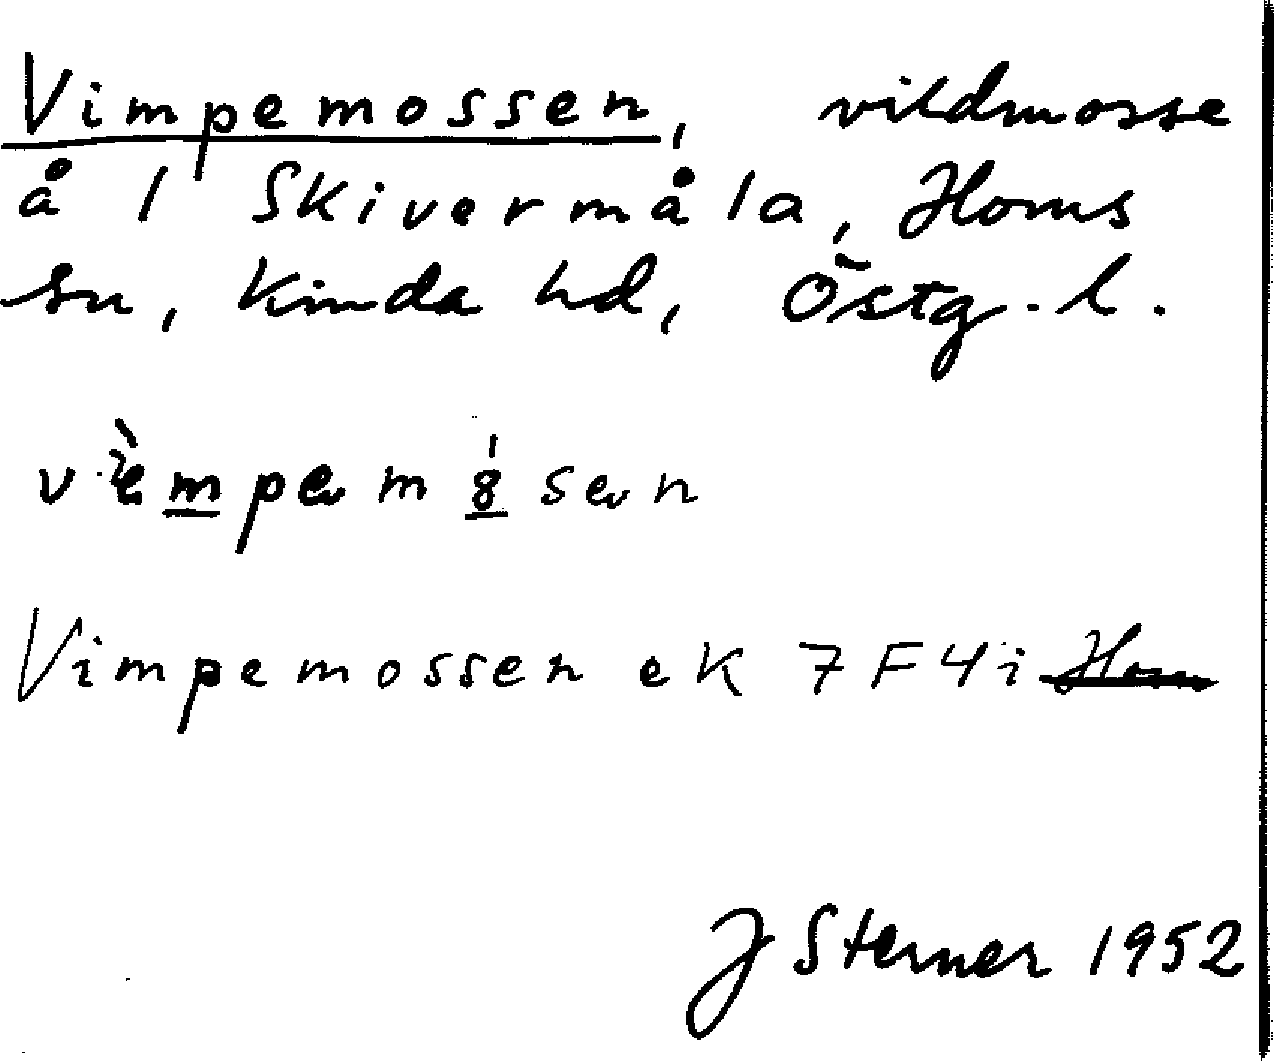 Vimpemossen, vildmosse
å 1 Skivermåla, Horns
sn, Kinda hd, Östg.l.
v èmpəm 8́ sən
Vimpemossen ek 7F4i Horn
J Sterner 1952